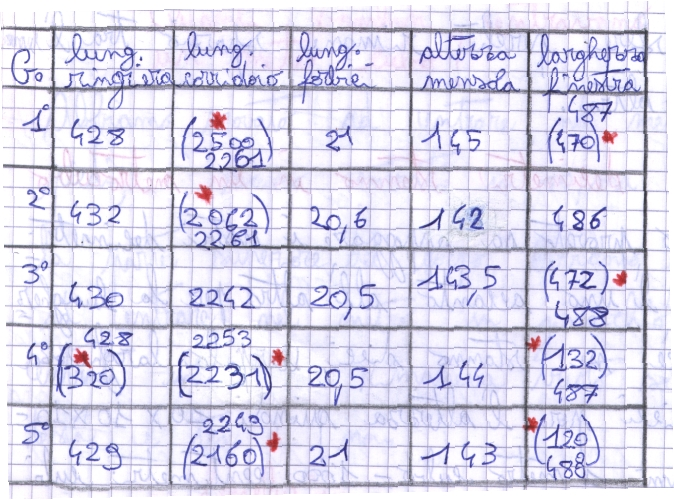 Go lung. ringhiera lung. corridoio lung. forbici altezza mensola larghezza finestra
1° 428 (2500)* 2261 21 145 487 (470)*
2° 432 (2062)* 2261 20,6 142 486
3° 430 2242 20,5 143,5 (472)* 488
4° 428 (320)* 2253 (2231)* 20,5 144 *(132) 487
5° 429 2249 (2160)* 21 143 *(120) 488